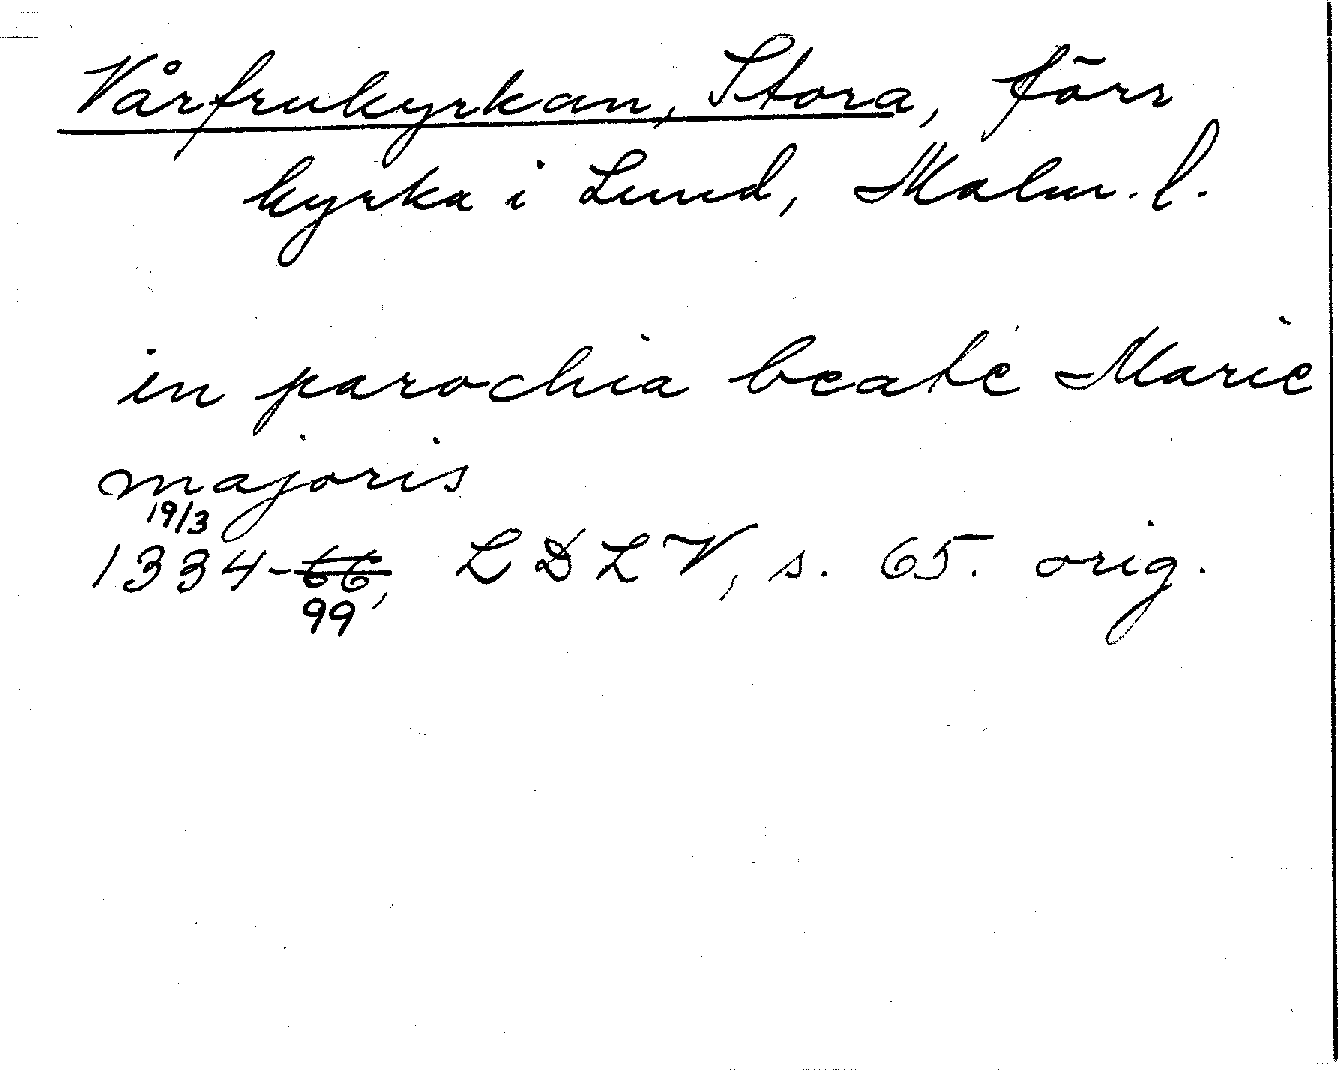 Vårfrukyrkan, Stora, förr
kyrka i Lund, Malm. l.
in parochia beate Marie
majoris
19/3
1334-66, L D L V, s. 65. orig.
99